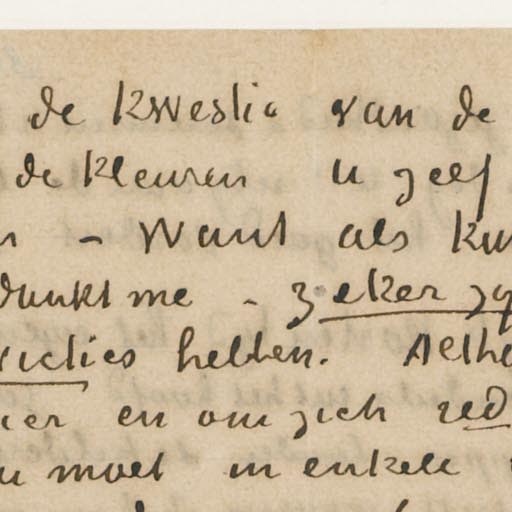 de kwestie van de
de kleuren u geef
n – want als ku
dunkt me – zeker zy
victies hebben. Aethe
ier en om zich red
u moet in enkele